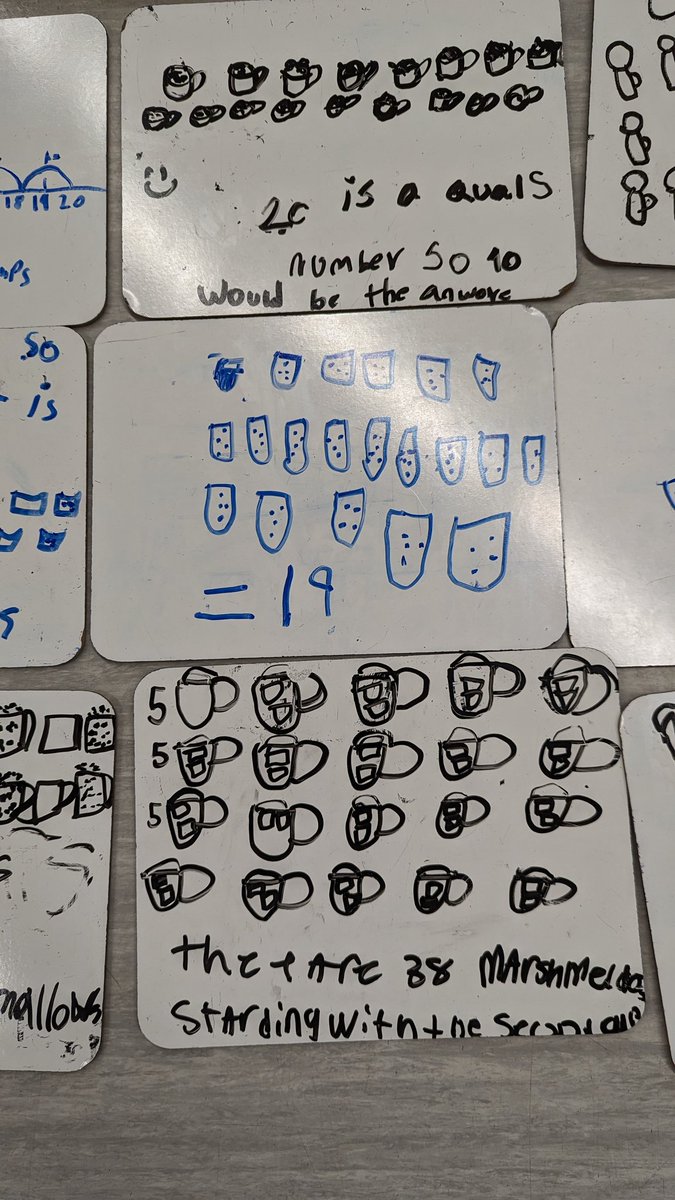 18 19 20
mps
is a quals
number so 10
would be the anwore
so
is
= 19
5
5
5
mallows
there Are 38 MArshmeldos
StArdingwith the second cup